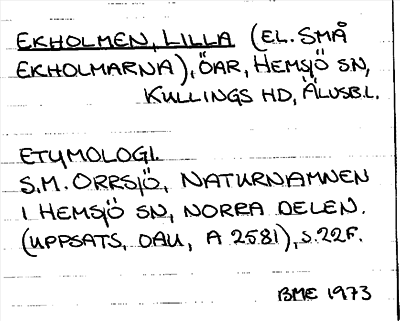 EKHOLMEN, LILLA (EL. SMÅ
EKHOLMARNA), ÖAR, HEMSJÖ SN,
KULLINGS HD, ÄLVSB.L.
ETYMOLOGI.
S.M. ORRSJÖ, NATURNAMNEN
I HEMSJÖ SN, NORRA DELEN.
(UPPSATS, DAU, A 2581), S.22F.
BME 1973